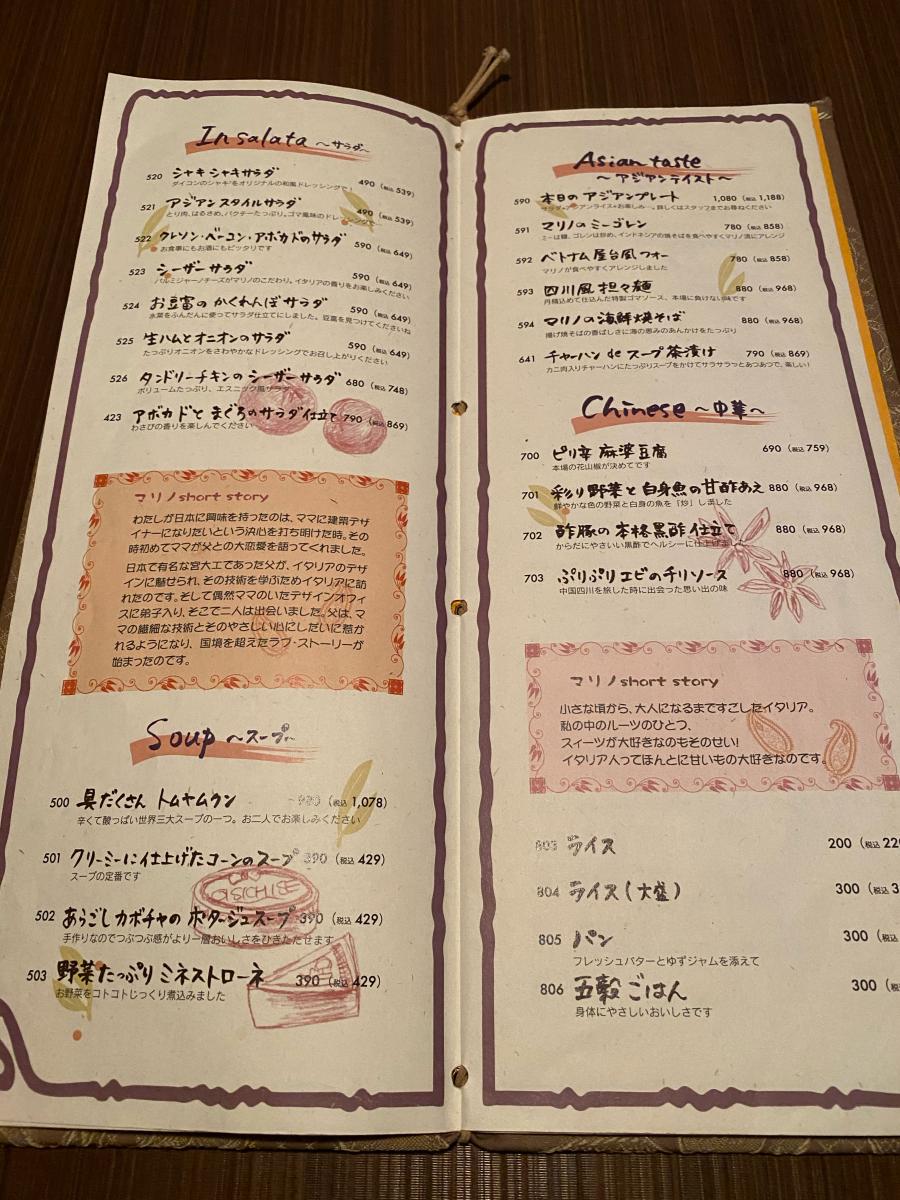 Insalata ～サラダ～
520 シャキシャキサラダ 490（税込539）
ダイコンのシャキ²をオリジナルの和風ドレッシングで！
521 アジアンスタイルサラダ 490（税込539）
とり肉、はるさめ、パクチーたっぷり。ゴマ風味のドレッシングで
522 クレソン・ベーコン・アボカドのサラダ 590（税込649）
お食事にもお酒にもピッタリです
523 シーザーサラダ 590（税込649）
パルミジャーノチーズがマリノのこだわり。イタリアの香りをお楽しみください
524 お豆富のかくれんぼサラダ 590（税込649）
水菜をふんだんに使ってサラダ仕立てにしました。豆富を見つけてくださいね
525 生ハムとオニオンのサラダ 590（税込649）
たっぷりオニオンをさわやかなドレッシングでお召し上がりください
526 タンドリーチキンのシーザーサラダ 680（税込748）
ボリュームたっぷり、エスニック風サラダ
423 アボカドとまぐろのサラダ仕立て 790（税込869）
わさびの香りを楽しんでください
マリノshort story
わたしが日本に興味を持ったのは、ママに建築デザ
イナーになりたいという決心を打ち明けた時。その
時初めてママが父との大恋愛を語ってくれました。
日本で有名な宮大工であった父が、イタリアのデザ
インに魅せられ、その技術を学ぶためイタリアに訪
れたのです。そして偶然ママのいたデザインオフィ
スに弟子入り、そこで二人は出会いました。父は、マ
マの繊細な技術とそのやさしい心にしだいに惹か
れるようになり、国境を超えたラブ・ストーリーが
始まったのです。
Soup ～スープ～
500 具だくさん トムヤムクン 980（税込1,078）
辛くて酸っぱい世界三大スープの一つ。お二人でお楽しみください
501 クリーミーに仕上げたコーンのスープ 390（税込429）
スープの定番です
502 あらごしカボチャの ポタージュスープ 390（税込429）
手作りなのでつぶつぶ感がより一層おいしさをひきたたせます
503 野菜たっぷり ミネストローネ 390（税込429）
お野菜をコトコトじっくり煮込みました
Asian taste
～アジアンテイスト～
590 本日のアジアンプレート 1,080（税込1,188）
サラダ・アジアンライス+お楽しみ…。詳しくはスタッフまでお尋ねください
591 マリノのミーゴレン 780（税込858）
ミーは麺、ゴレンは炒め、インドネシアの焼そばを食べやすくマリノ流にアレンジ
592 ベトナム屋台風フォー 780（税込858）
マリノが食べやすくアレンジしました
593 四川風担々麺 880（税込968）
丹精込めて仕込んだ特製ゴマソース、本場に負けない味です
594 マリノの海鮮焼そば 880（税込968）
揚げ焼そばの香ばしさに海の恵みのあんかけをたっぷり
641 チャーハン de スープ茶漬け 790（税込869）
カニ肉入りチャーハンにたっぷりスープをかけてサラサラっとあつあつで、楽しい！
Chinese ～中華～
700 ピリ辛 麻婆豆腐 690（税込759）
本場の花山椒が決めてです
701 彩り野菜と白身魚の甘酢あえ 880（税込968）
鮮やかな色の野菜と白身の魚を「炒」し漢した
702 酢豚の本格黒酢仕立て 880（税込968）
からだにやさしい黒酢でヘルシーに仕上げました
703 ぷりぷりエビのチリソース 880（税込968）
中国四川を旅した時に出会った思い出の味
マリノshort story
小さな頃から、大人になるまですごしたイタリア。
私の中のルーツのひとつ、
スィーツが大好きなのもそのせい！
イタリア人ってほんとに甘いもの大好きなのです。
803 ライス 200（税込220
804 ライス（大盛） 300（税込3
805 パン 300（税込
フレッシュバターとゆずジャムを添えて
806 五穀ごはん 300（税
身体にやさしいおいしさです